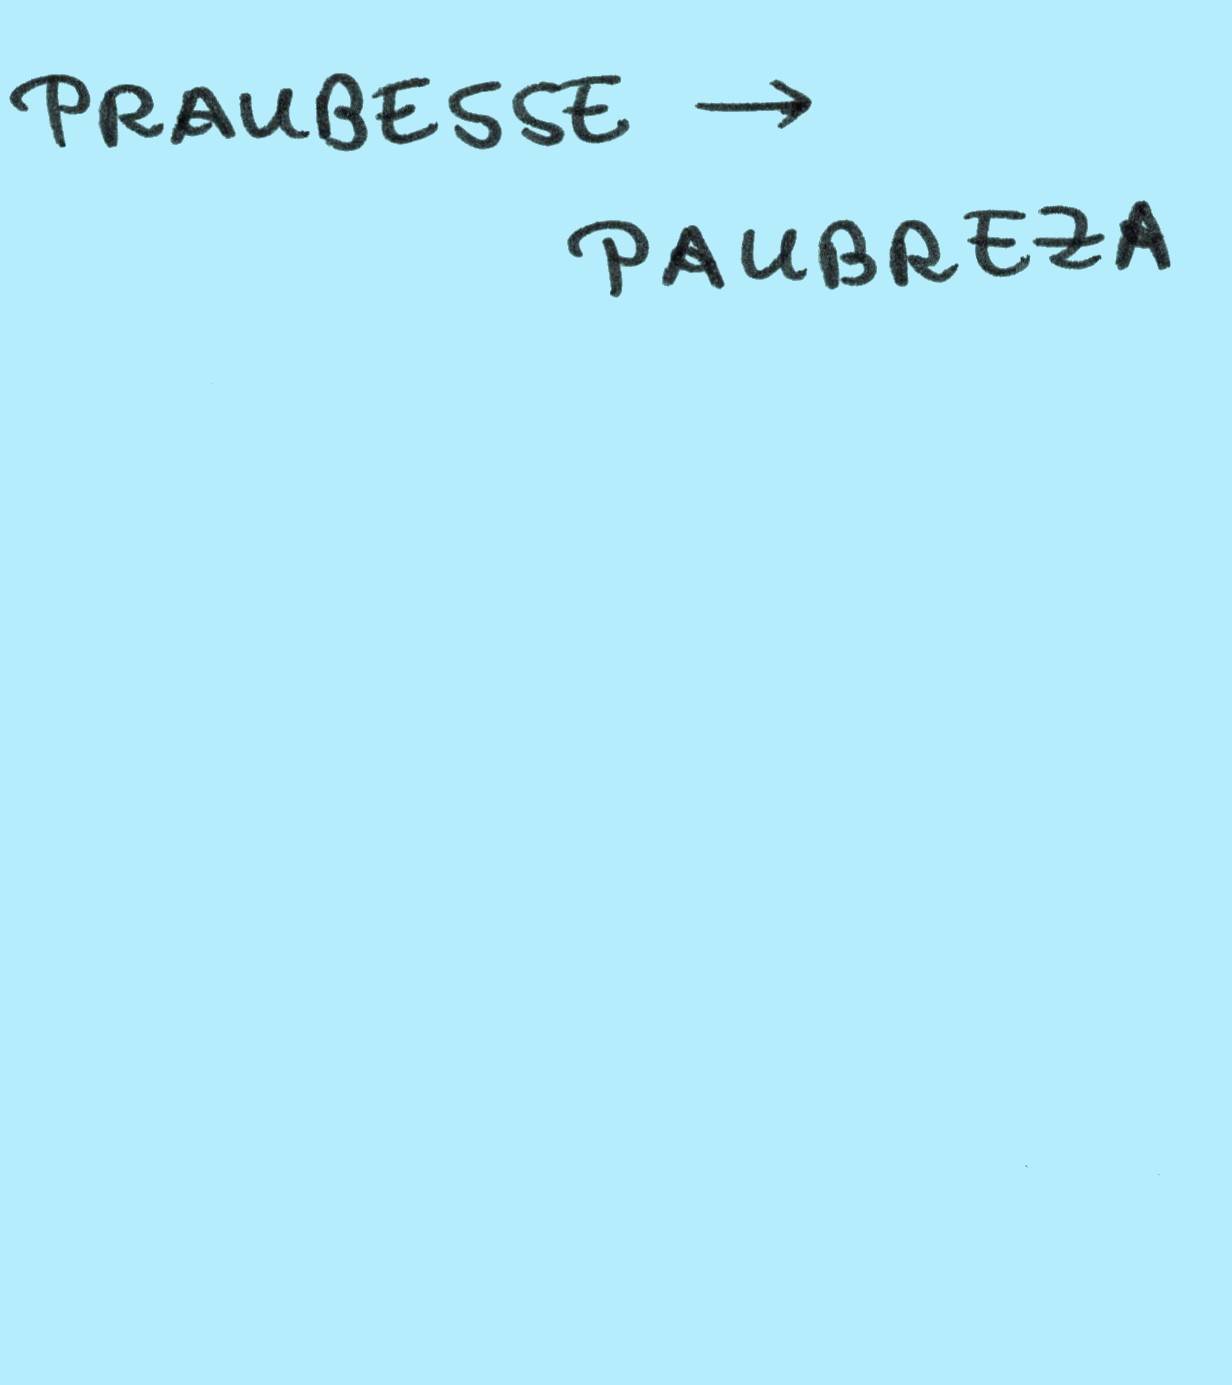 PRAUBESSE →
PAUBREZA